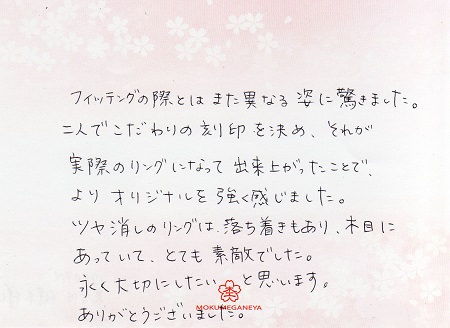 フィッテングの際とはまた異なる姿に驚きました。
二人でこだわりの刻印を決め、それが
実際のリングになって出来上がったことで、
よりオリジナルを強く感じました。
ツヤ消しのリングは、落ち着きもあり、木目に
あっていて、とても素敵でした。
永く大切にしたいと思います。
MOKUMEGANEYA
ありがとうございました。